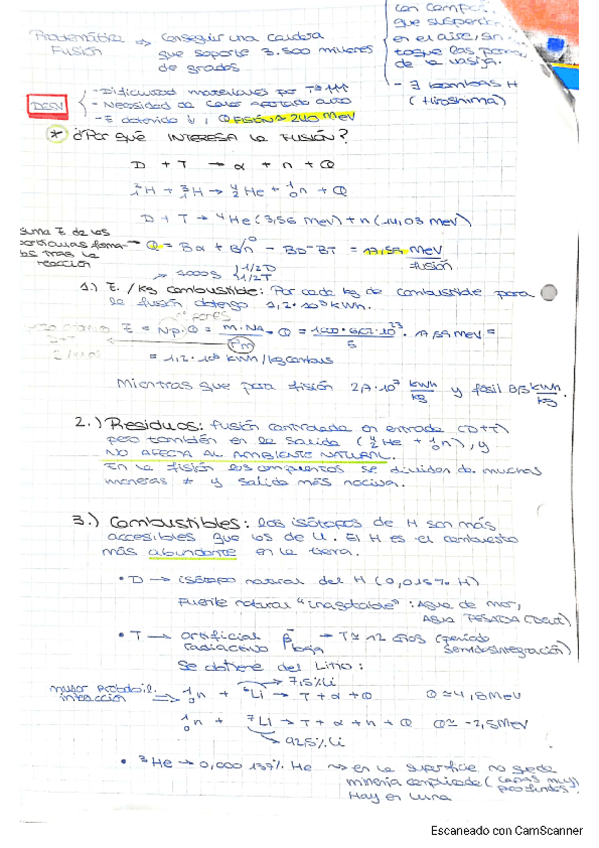 Problemática Fusión => Conseguir una caldera
que soporte 3.500 millones
de grados
con campos
que suspenden
en el aire, sin
toque las
de la vasija.
- ∃ bombas H
(Hiroshima)
DESV
- Dificultad materiales por Tª ↑↑↑
- Necesidad de calor aportado alto
- E obtenida ↓, Q FISIÓN ≈ 240 MeV
* ¿Por qué INTERESA la FUSIÓN?
D + T → α + n + Q
²₁H + ³₁H → ⁴₂He + ¹₀n + Q
D + T → ⁴He (3,56 MeV) + n (14,03 MeV)
suma E de las
partículas
tras la
reacción
Q = Bα + B/n - BD - BT = 17,59 MeV
fusión
1000g 1/2D
1/2T
1.) E. / kg combustible: Por cada kg de combustible para
la fusión obtengo 1,2·10⁸ kWh.
pares
E = Np·Q = m·NA · Q = · 17,59 MeV =
Pm
5
= 1,2·10⁸ kWh/kg
Mientras que para fisión 2,7·10⁷ kWh/kg y fósil kWh/kg.
2.) Residuos: fusión controlada en entrada (D+T)
pero también en la salida (⁴₂He + ¹₀n), y
NO AFECTA AL AMBIENTE NATURAL.
En la fisión los se dividen de muchas
maneras * y salida más nociva.
3.) Combustibles: los isótopos de H son más
accesibles que los de U. El H es el compuesto
más abundante en la tierra.
• D → isótopo natural del H (0,015% H)
Fuente natural "inagotable": Agua de mar,
AGUA PESADA
• T → artificial β⁻ → T ≈ 12 años (período
radiactivo baja semidesintegración)
Se obtiene del Litio:
7,5% Li
mayor probabil.
interacción
¹₀n + ⁶Li → T + α + Q Q ≈ 4,8 MeV
¹₀n + ⁷Li → T + α + n + Q Q ≈ -2,5 MeV
92,5% Li
• ³He → 0,000 137% He → en la superficie no queda
minería complicada (capas muy
profundas).
Hay en luna
Escaneado con CamScanner